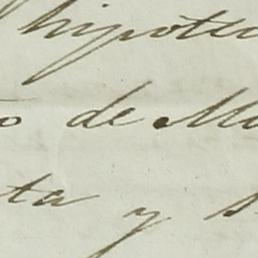 hipotec
o de Ma
ta y